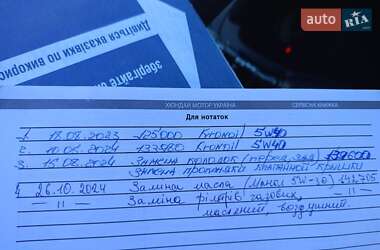 Дивіться вказівки по викорис
зберігайте
auto RIA.com
ХЮНДАЙ МОТОР УКРАЇНА СЕРВІСНА КНИЖКА
Для нотаток
1. 18.08.2023 125000 Kronoil 5W40
2. 10.08.2024 133580 Kronoil 5W40
3. 15.08.2024 Замена колодок (перед, зад)
Замена прокладки клапанной крышки
4. 26.10.2024 Заміна масла (Манол 5W-30) 142.705
— 11 — Заміна фільтрів газових,
— 11 — масляний, воздушний.